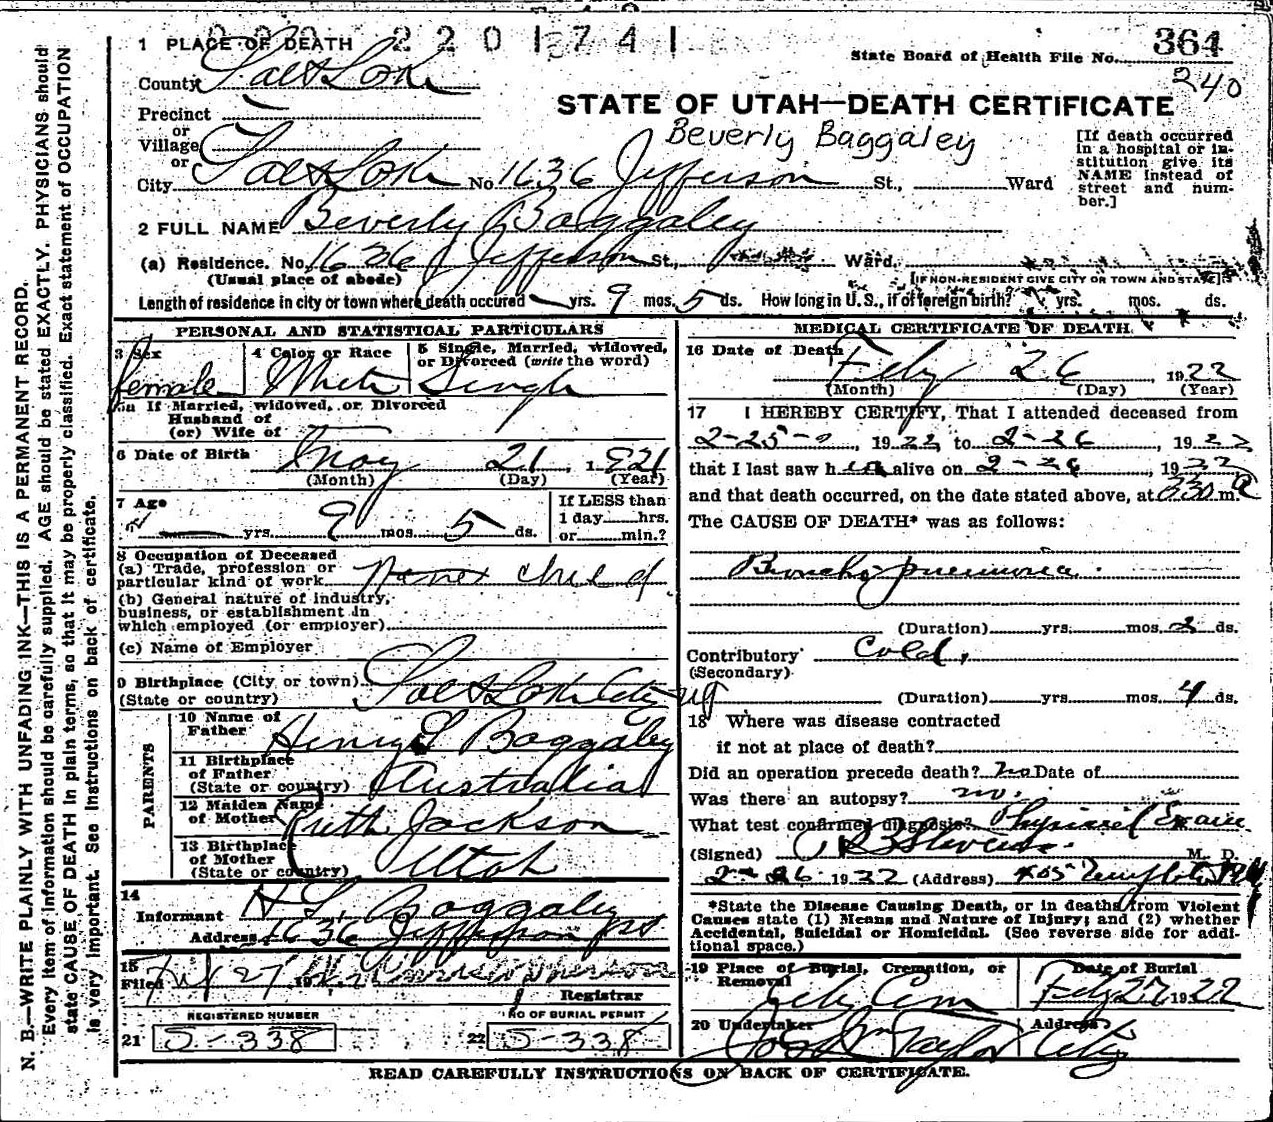 220174
1 PLACE OF DEATH
State Board of Health File No. 364
240
County Salt Lake
STATE OF UTAH—DEATH CERTIFICATE
Beverly Baggaley
Precinct
or
Village
or
City Salt Lake No 1636 Jefferson St., Ward
[If death occurred in a hospital or institution give its NAME instead of street and number.]
2 FULL NAME Beverly Baggaley
(a) Residence. No. 1636 Jefferson St., Ward.
(Usual place of abode)
[IF NON-RESIDENT GIVE CITY OR TOWN AND STATE]
Length of residence in city or town where death occured — yrs. 9 mos. 5 ds. How long in U. S., if of foreign birth? yrs. mos. ds.
PERSONAL AND STATISTICAL PARTICULARS
3 Sex female
4 Color or Race White
5 Single, Married, Widowed, or Divorced (write the word) Single
5a If Married, widowed, or Divorced
Husband of
(or) Wife of —
6 Date of Birth May 21, 1921
(Month) (Day) (Year)
7 Age — yrs. 9 mos. 5 ds.
If LESS than
1 day......hrs.
or......min.?
8 Occupation of Deceased
(a) Trade, profession or
particular kind of work none child
(b) General nature of industry,
business, or establishment in
which employed (or employer)
(c) Name of Employer
9 Birthplace (City or town) Salt Lake City Ut
(State or country)
PARENTS
10 Name of Father Henry G Baggaley
11 Birthplace of Father Australia
(State or country)
12 Maiden Name of Mother Ruth Jackson
13 Birthplace of Mother Utah
(State or country)
14
Informant H G Baggaley
Address 1636 Jefferson st
15
Filed Feb 27 19
Registrar
REGISTERED NUMBER
21 S-338
NO OF BURIAL PERMIT
22 S-338
MEDICAL CERTIFICATE OF DEATH
16 Date of Death Feby 26 1922
(Month) (Day) (Year)
17 I HEREBY CERTIFY, That I attended deceased from
2-25-, 1922 to 2-26, 1922
that I last saw her alive on 2-26, 1922
and that death occurred, on the date stated above, at 330 m. a
The CAUSE OF DEATH* was as follows:
Broncho pneumonia.
(Duration) yrs. mos. 2 ds.
Contributory Cold,
(Secondary)
(Duration) yrs. mos. 4 ds.
18 Where was disease contracted
if not at place of death?
Did an operation precede death? no Date of
Was there an autopsy? no.
What test confirmed diagnosis? Physical Exam
(Signed) Stevens. M. D.
2-26 1922 (Address) 405 Templeton
*State the Disease Causing Death, or in deaths from Violent
Causes state (1) Means and Nature of Injury; and (2) whether
Accidental, Suicidal or Homicidal. (See reverse side for addi-
tional space.)
19 Place of Burial, Cremation, or Removal City Cem
Date of Burial Feby 27 1922
20 Undertaker Jos Wm Taylor
Address City
READ CAREFULLY INSTRUCTIONS ON BACK OF CERTIFICATE.
N. B.—WRITE PLAINLY WITH UNFADING INK—THIS IS A PERMANENT RECORD.
Every item of Information should be carefully supplied. AGE should be stated EXACTLY. PHYSICIANS should
state CAUSE OF DEATH in plain terms, so that it may be properly classified. Exact statement of OCCUPATION
is very important. See Instructions on back of certificate.